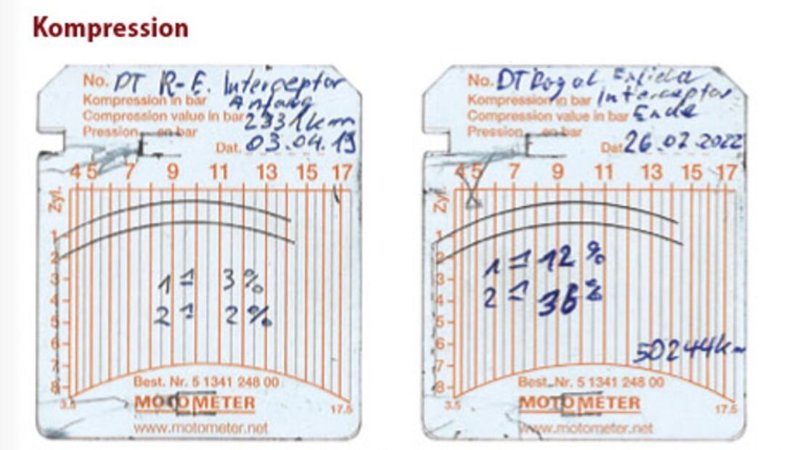 Kompression
No. DT R-E. Interceptor
Kompression in bar Anfang
Compression value in bar
2331km
Pression en bar
Dat. 03.04.19
4 5 7 9 11 13 15 17
Zyl.
1
2
3
4
5
6
7
8
1 = 3%
2 = 2%
3.5
17.5
Best. Nr. 5 1341 248 00
MOTOMETER
www.motometer.net
No. DT Royal Enfield
Kompression in bar Interceptor
Compression value in bar Ende
Pression en bar
Dat. 26.02.2022
4 5 7 9 11 13 15 17
Zyl.
1
2
3
4
5
6
7
8
1 = 12%
2 = 36%
50244km
3.5
17.5
Best. Nr. 5 1341 248 00
MOTOMETER
www.motometer.net